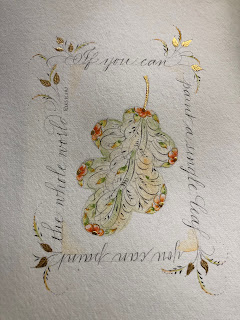 If you can
paint a single leaf
you can paint
the whole world